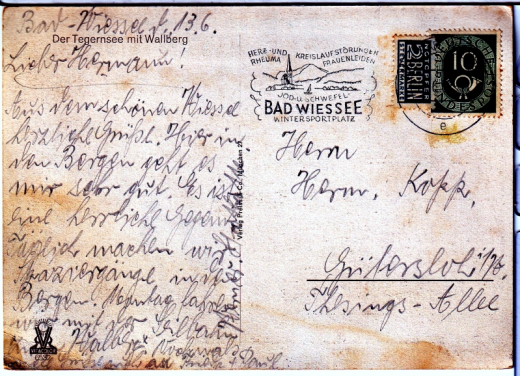 Bad-Wiessee, d. 13.6.
Der Tegernsee mit Wallberg
Lieber Hermann!
Aus dem schönen Wiessee
herzliche Grüße. Hier in
den Bergen geht es
mir sehr gut. Es ist
eine herrliche Gegend.
Täglich machen wir
Spaziergänge in die
Bergen. Montag fahren
wir mit der Seilbahn
HERZ- UND KREISLAUFSTÖRUNGEN
RHEUMA FRAUENLEIDEN
JOD- U. SCHWEFEL
BAD WIESSEE
WINTERSPORTPLATZ
NOTOPFER
2 BERLIN
STEUERMARKE
DEUTSCHE BUNDESPOST
10
e
Herrn
Herm. Kopp,
Gütersloh i/W.
Thesings-Allee